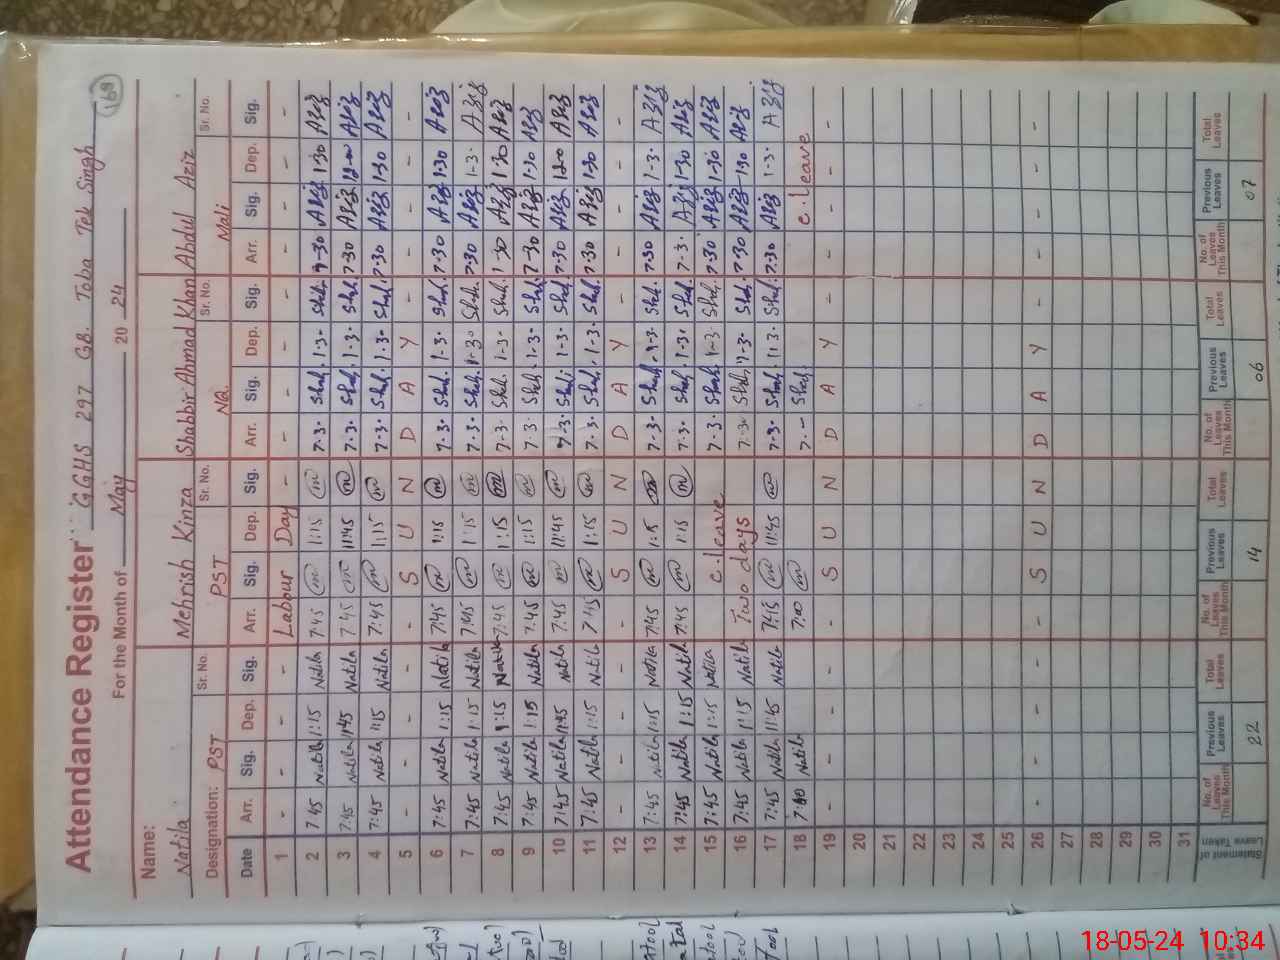 168
Attendance Register GGHS 297 GB. Toba Tek Singh
For the Month of May 20 24
Name: Natila Mehrish Kinza Shabbir Ahmad Khan Abdul Aziz
Designation: PST Sr. No. PST Sr. No. NQ. Sr. No. Mali Sr. No.
Date Arr. Sig. Dep. Sig. Arr. Sig. Dep. Sig. Arr. Sig. Dep. Sig. Arr. Sig. Dep. Sig.
1 - - - - Labour Day - - - - - - - - -
2 7:45 Natila 1:15 Natila 7:45 m 1:15 m 7-3- Shab. 1-3- Shab. 7-30 Aziz 1-30 Aziz
3 7:45 Natila 11:45 Natila 7:45 m 11:45 m 7-3- Shab. 1-3- Shab. 7-30 Aziz 12-00 Aziz
4 7:45 Natila 1:15 Natila 7:45 m 1:15 m 7-3- Shab. 1-3- Shab. 7-30 Aziz 1-30 Aziz
5 - - - - - S U N D A Y - - - - -
6 7:45 Natila 1:15 Natila 7:45 m 1:15 m 7-3- Shab. 1-3- Shab. 7-30 Aziz 1-30 Aziz
7 7:45 Natila 1:15 Natila 7:45 m 1:15 m 7-3- Shab. 1-30 Shab. 7-30 Aziz 1-3- Aziz
8 7:45 Natila 1:15 Natila 7:45 m 1:15 m 7-3- Shab. 1-3- Shab. 1-30 Aziz 1-30 Aziz
9 7:45 Natila 1:15 Natila 7:45 m 1:15 m 7-3- Shab. 1-3- Shab. 7-30 Aziz 1-30 Aziz
10 7:45 Natila 11:45 Natila 7:45 m 11:45 m 7-3- Shab. 1-3- Shab. 7-30 Aziz 12-0 Aziz
11 7:45 Natila 1:15 Natila 7:45 m 1:15 m 7-3- Shab. 1-3- Shab. 7-30 Aziz 1-30 Aziz
12 - - - - - S U N D A Y - - - - -
13 7:45 Natila 1:15 Natila 7:45 m 1:15 m 7-3- Shab. 1-3- Shab. 7-30 Aziz 1-3- Aziz
14 7:45 Natila 1:15 Natila 7:45 m 1:15 m 7-3- Shab. 1-3- Shab. 7-3- Aziz 1-30 Aziz
15 7:45 Natila 1:15 Natila C. Leave 7-3- Shab. 1-3- Shab. 7-30 Aziz 1-30 Aziz
16 7:45 Natila 1:15 Natila Two days 7-3- Shab. 1-3- Shab. 7-30 Aziz 1-30 Aziz
17 7:45 Natila 11:45 Natila 7:45 m 11:45 m 7-3- Shab. 11-3- Shab. 7-30 Aziz 1-3- Aziz
18 7:00 Natila 7:00 m 7-- Shab. C. Leave
19 - - - - - S U N D A Y - - - - -
20
21
22
23
24
25
26 - - - - - S U N D A Y - - - - -
27
28
29
30
31
Statement of Leave Taken No. of Leaves This Month Previous Leaves Total Leaves No. of Leaves This Month Previous Leaves Total Leaves No. of Leaves This Month Previous Leaves Total Leaves No. of Leaves This Month Previous Leaves Total Leaves
22 14 06 07
18-05-24 10:34